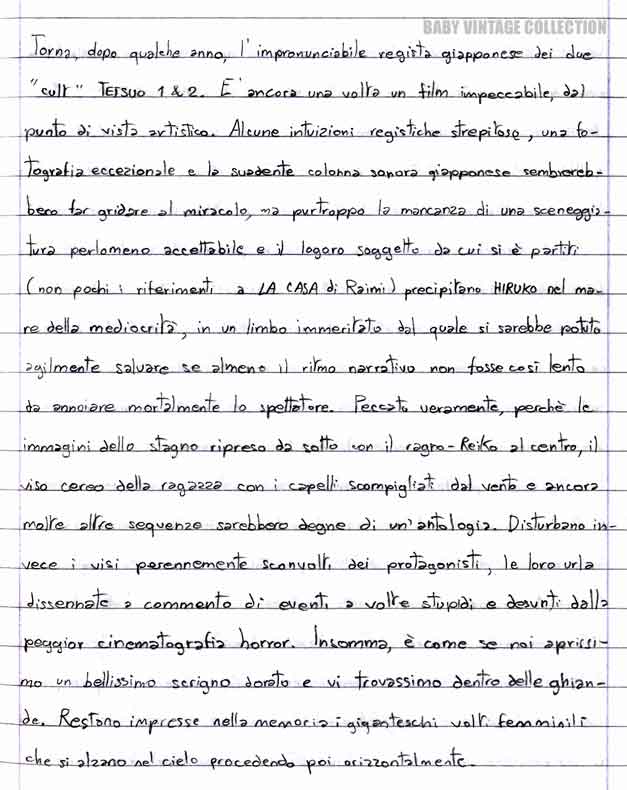 BABY VINTAGE COLLECTION
Torna, dopo qualche anno, l'impronunciabile regista giapponese dei due
"cult" TETSUO 1 & 2. E' ancora una volta un film impeccabile, dal
punto di vista artistico. Alcune intuizioni registiche strepitose, una fo-
tografia eccezionale e la suadente colonna sonora giapponese sembrereb-
bero far gridare al miracolo, ma purtroppo la mancanza di una sceneggia-
tura perlomeno accettabile e il logoro soggetto da cui si è partiti
(non pochi i riferimenti a LA CASA di Raimi) precipitano HIRUKO nel ma-
re della mediocrità, in un limbo immeritato dal quale si sarebbe potuto
agilmente salvare se almeno il ritmo narrativo non fosse così lento
da annoiare mortalmente lo spettatore. Peccato veramente, perchè le
immagini dello stagno ripreso da sotto con il ragno-Reiko al centro, il
viso cereo della ragazza con i capelli scompigliati dal vento e ancora
molte altre sequenze sarebbero degne di un'antologia. Disturbano in-
vece i visi perennemente sconvolti dei protagonisti, le loro urla
dissennate a commento di eventi a volte stupidi e desunti dalla
peggior cinematografia horror. Insomma, è come se noi aprissi-
mo un bellissimo scrigno dorato e vi trovassimo dentro delle ghian-
de. Restono impresse nella memoria i giganteschi volti femminili
che si alzano nel cielo procedendo poi orizzontalmente.